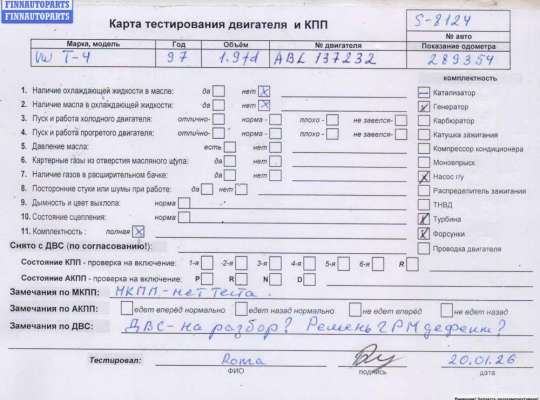 FINNAUTOPARTS
FINNAUTOPARTS
Карта тестирования двигателя и КПП
S-8124
№ авто
Марка, модель Год Объём № двигателя Показание одометра
VW T-4 97 1.9td ABL 137232 289354
комплектность
1. Наличие охлаждающей жидкости в масле: да нет x
2. Наличие масла в охлаждающей жидкости: да нет x
3. Пуск и работа холодного двигателя: отлично- норма - плохо - не завелся-
4. Пуск и работа прогретого двигателя: отлично- норма - плохо - не завелся-
5. Давление масла: есть нет
6. Картерные газы из отверстия масляного щупа: да нет
7. Наличие газов в расширительном бачке: да нет
8. Посторонние стуки или шумы при работе: да нет
9. Дымность и цвет выхлопа: норма
10. Состояние сцепления: норма
11. Комплектность : полная x
Катализатор
Генератор
Карбюратор
Катушка зажигания
Компрессор кондиционера
Моновпрыск
Насос г/у
Распределитель зажигания
ТНВД
Турбина
Форсунки
Проводка двигателя
Снято с ДВС (по согласованию!):
Состояние КПП - проверка на включение: 1-я -2-я 3-я 4-я 5-я 6-я R
Состояние АКПП - проверка на включение: P R N D
Замечания по МКПП: МКПП - нет теста.
Замечания по АКПП: едет вперед нормально едет назад нормально не едет вперёд не едет назад
Замечания по ДВС: ДВС - на разбор? Ремень ГРМ дефект?
Тестировал: Roma 20.01.26
ФИО подпись дата